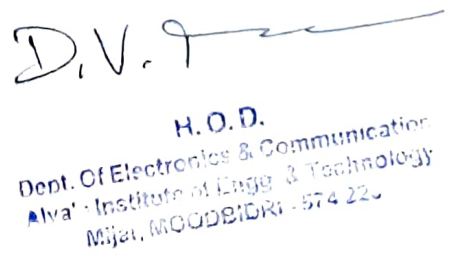 D.V.
H.O.D.
Dept. Of Electronics & Communication
Alva' Institute of Engg. & Technology
Mijar, MOODBIDRI - 574 22